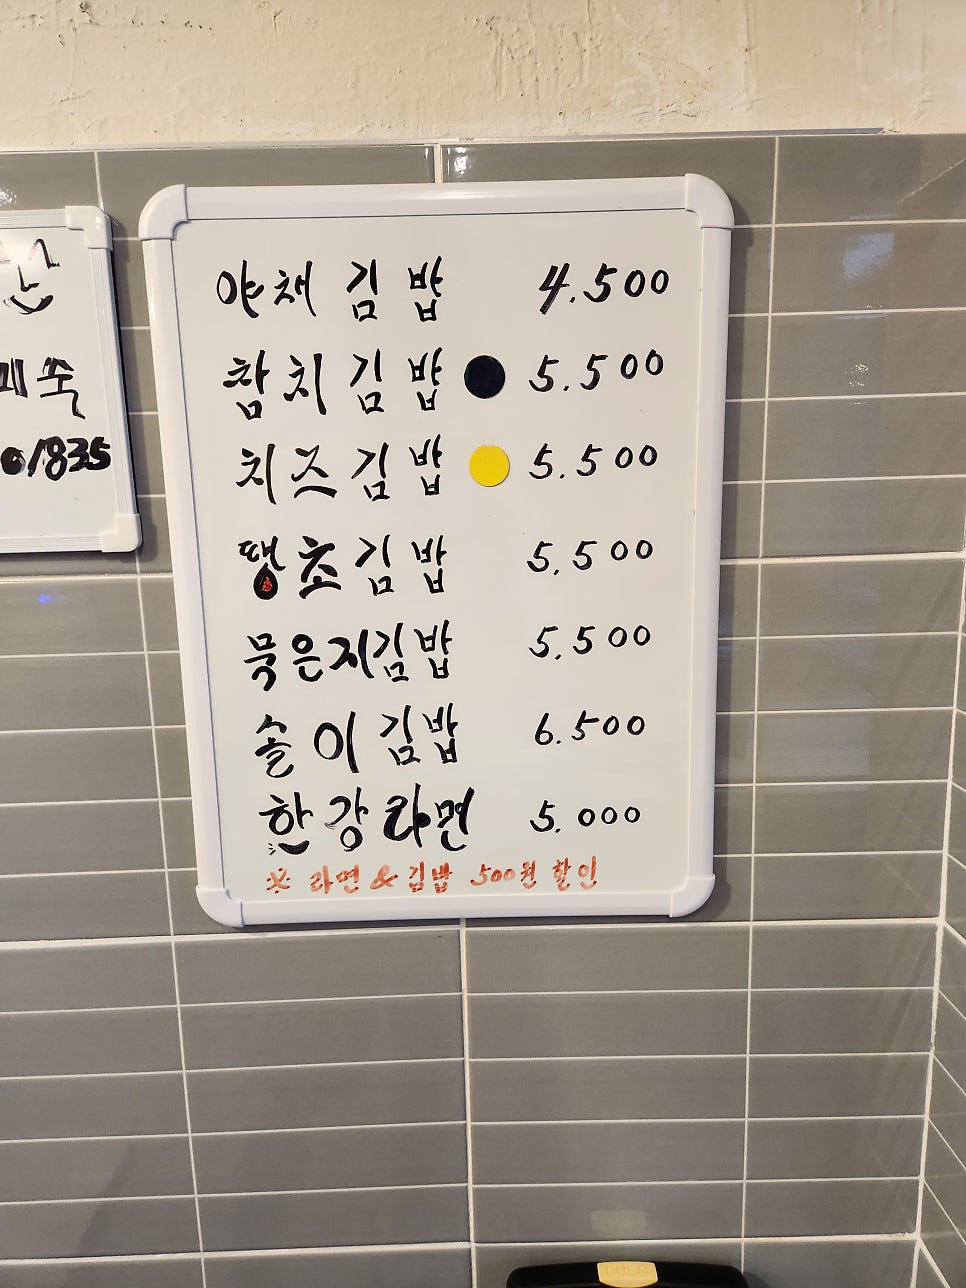 야채 김밥 4.500
참치김밥 5.500
치즈김밥 5.500
땡초김밥 5.500
묵은지김밥 5.500
솔이김밥 6.500
한강라면 5.000
※ 라면 & 김밥 500원 할인
쑥
01835
PUSH